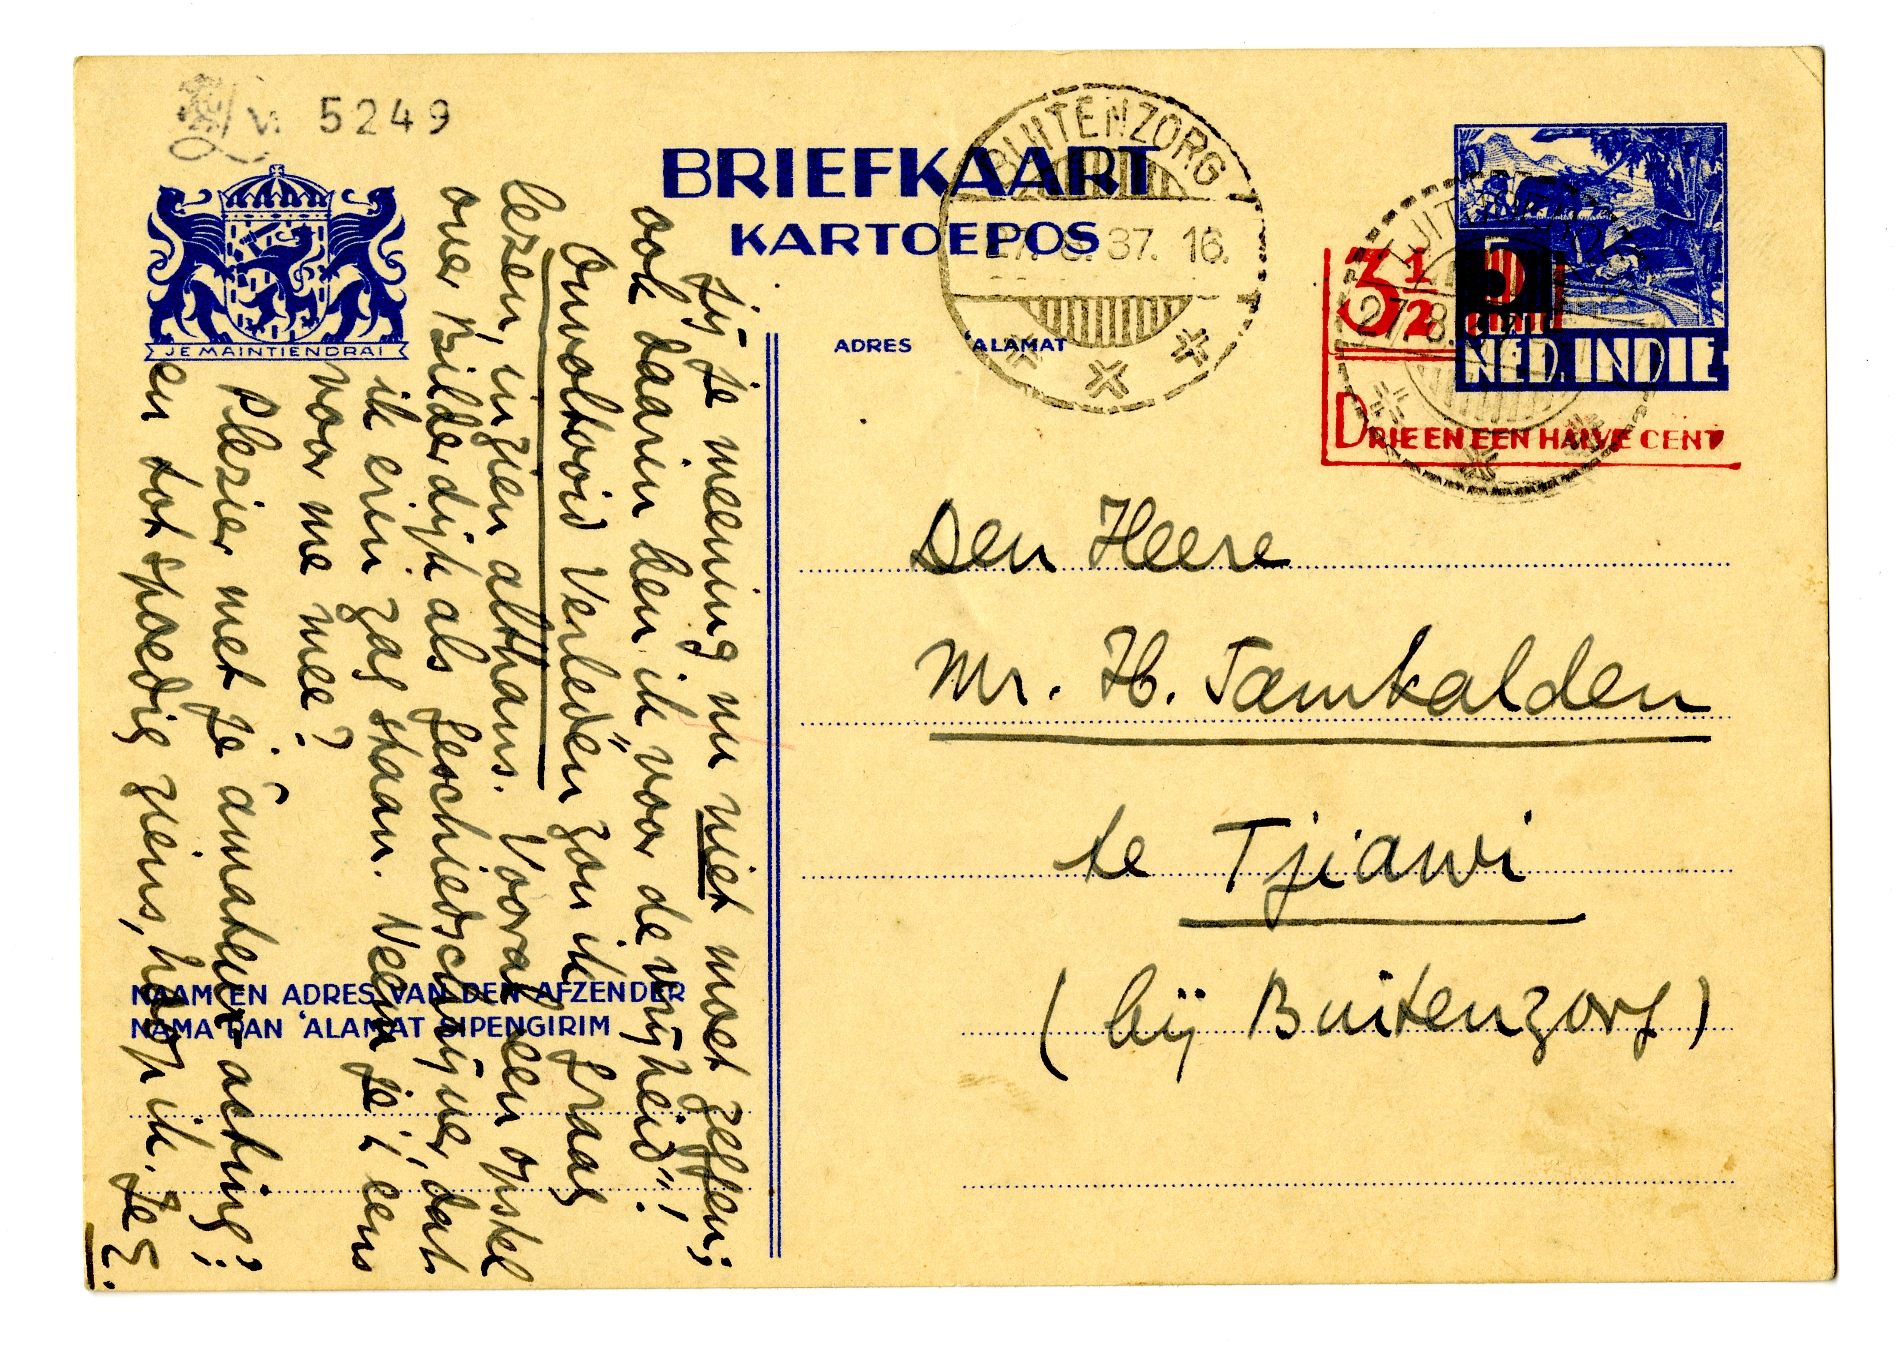 5249
BRIEFKAART
KARTOEPOS
BUITENZORG
27.8.37. 16.
JE MAINTIENDRAI
ADRES
'ALAMAT
3½
5
CENT
NED. INDIE
27.8.37
DRIE EN EEN HALVE CENT
Den Heere
Mr. H. Samkalden
te Tjiawi
(bij Buitenzorg)
NAAM EN ADRES VAN DEN AFZENDER
NAMA DAN 'ALAMAT SIPENGIRIM
je meening nu niet moet zeggen;
ook daarin ben ik voor de vrijheid".
Onvoltooid Verleden" zou ik graag
lezen, inzien althans. Vooral een opstel
over Bilderdijk als geschiedschrijver, dat
ik erin zag staan. Neem je 't eens
voor me mee?
Plezier met je amateur-acting!
en tot spoedig ziens, hoop ik. Je